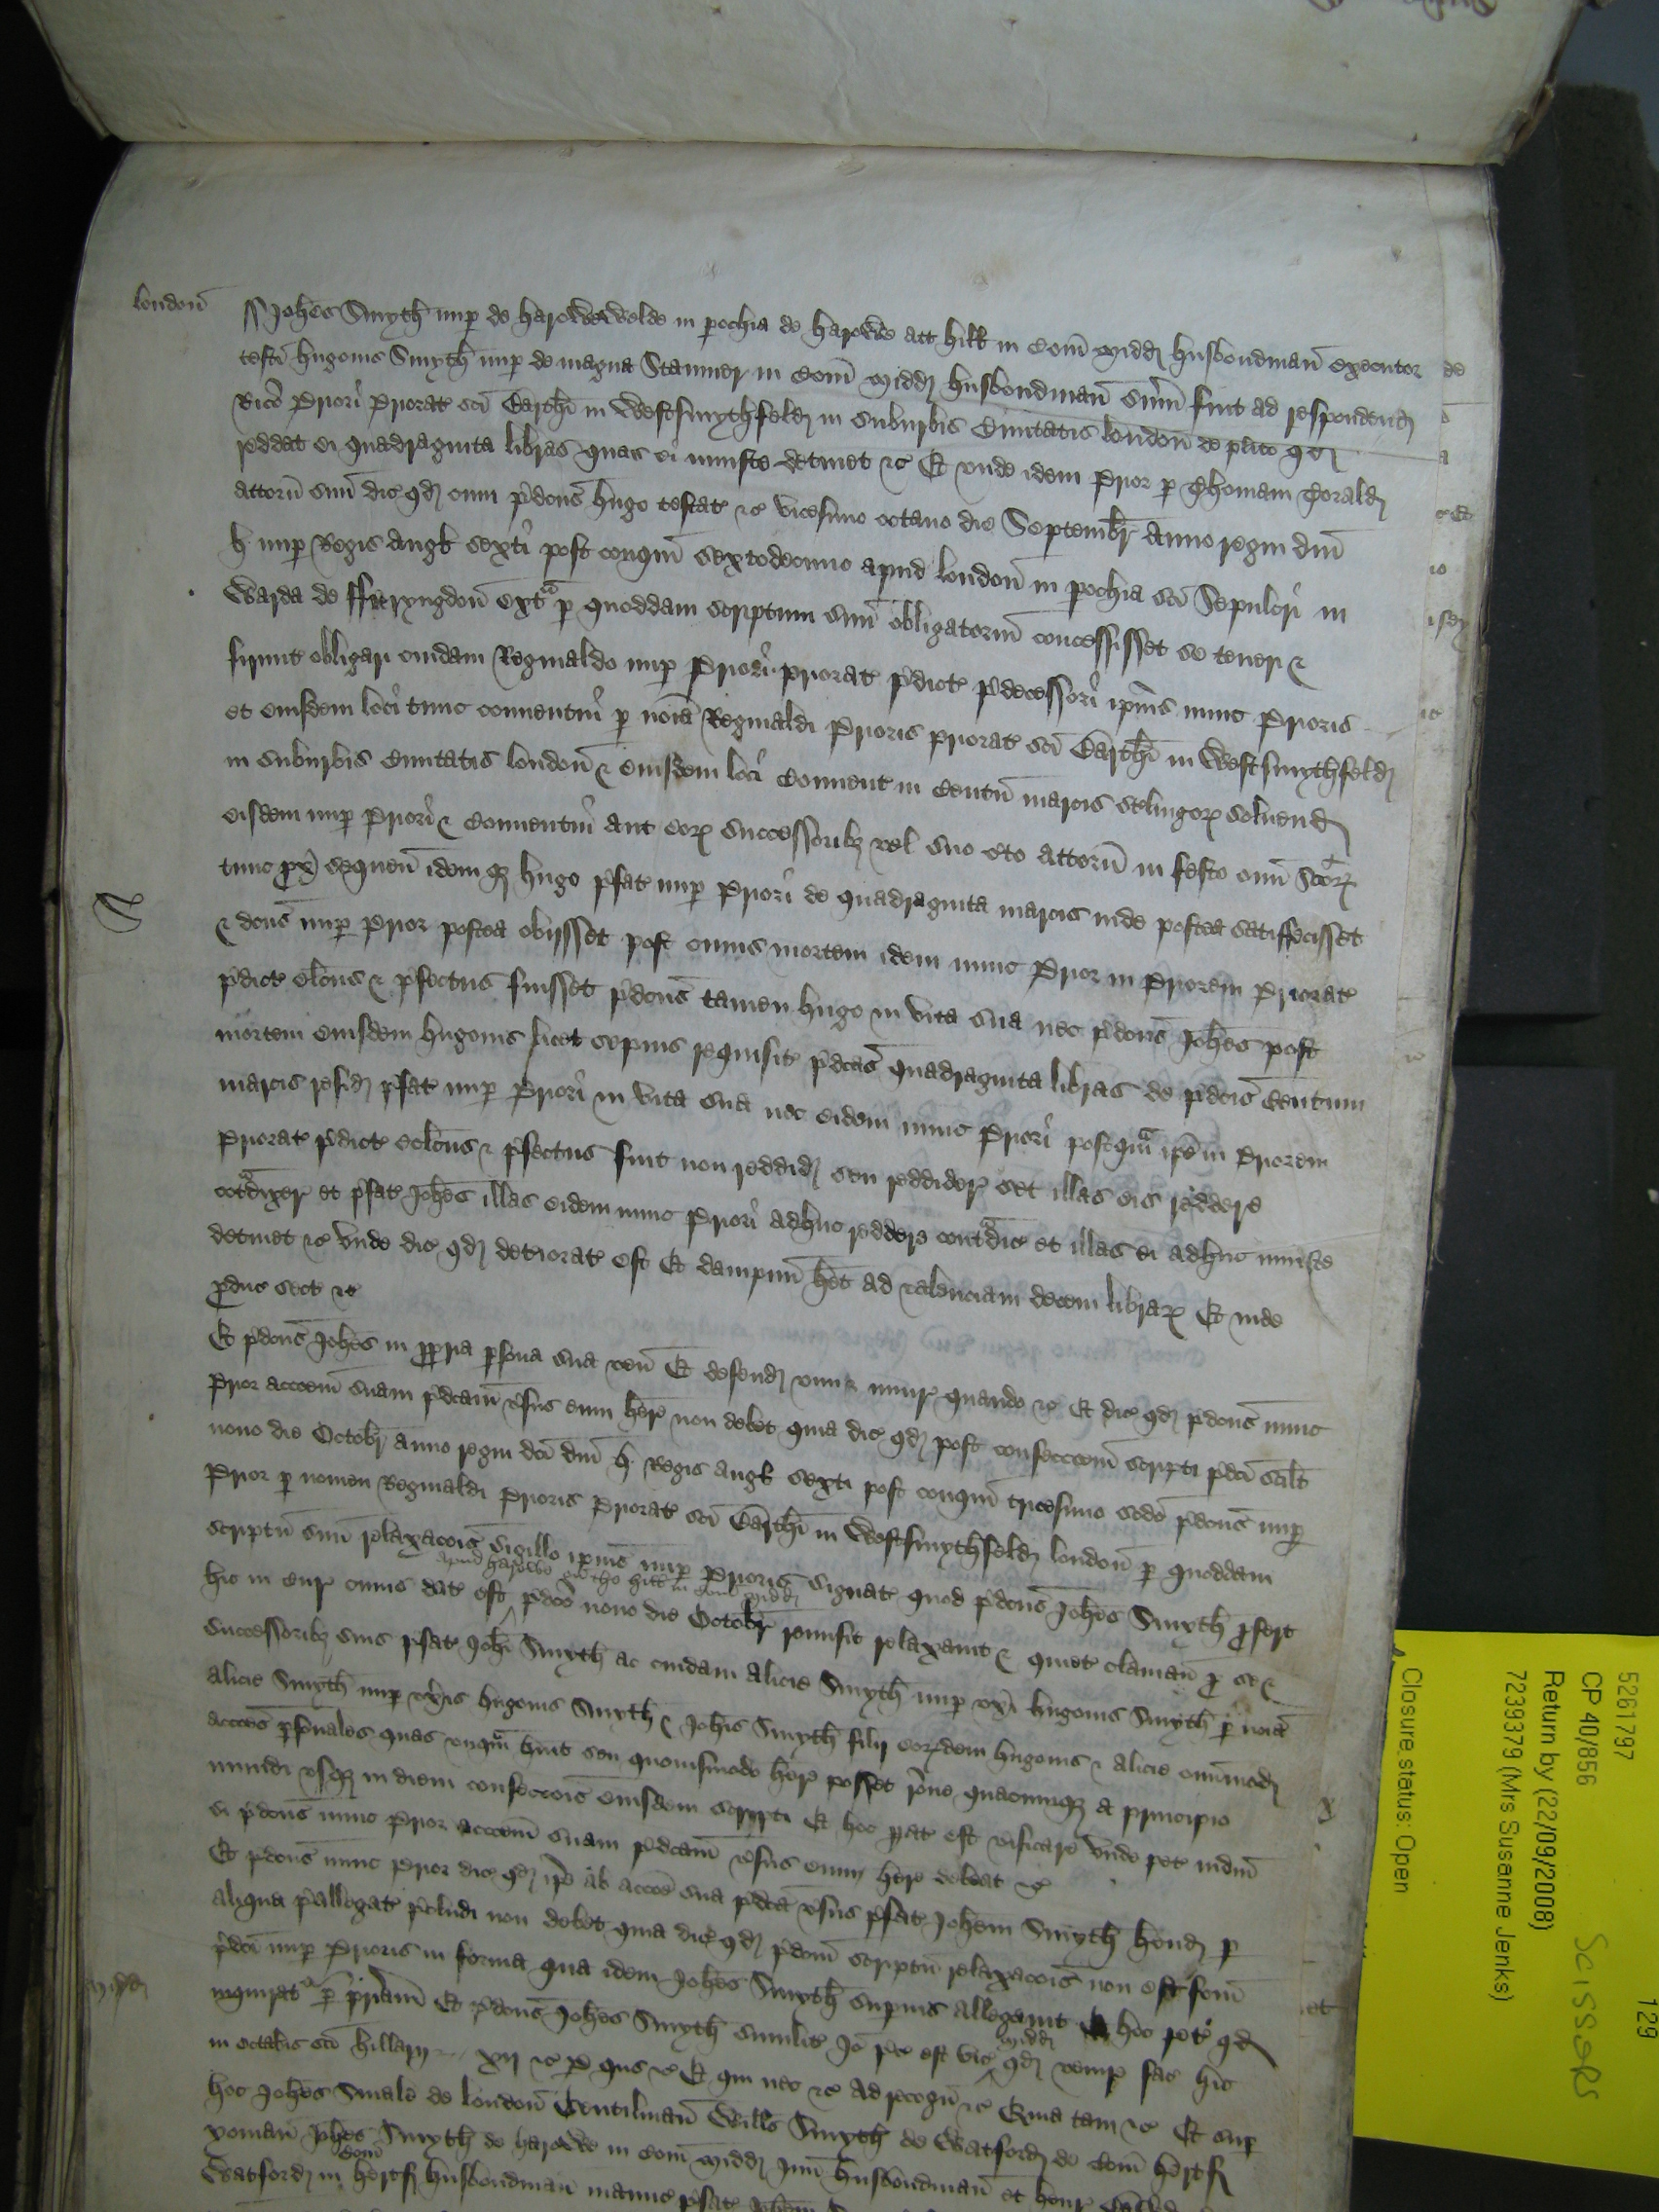 londoñ
Joh̄es Smyth nup de harowewelde in pochia de harowe att hill in Com̄ Midd husbondman executor
testi hugonis Smyth nup de magna Stanmer in Com̄ Midd husbondman sum̄ fuit ad respondend
Rico Priori Priorat sci Barthi in Westsmythfeld in Suburbis Ciuitatis london de plito qd
reddat ei quadraginta libras quas ei iniuste detinet &c Et vnde idem Prior p Thomam
attorn suu dic qd cum pdcus hugo testat &c vicesimo octauo die Septembr Anno regni dni
h nup Regis Angl sexti post conqm sextodecimo apud london in pochia sci Sepulcri in
Warda de ffaryngdon ext p quoddam scriptum suu obligatorium concessisset se teneri &
firmit obligari cuidam Reginaldo nup Priori priorat pdict pdecessori ipius nunc Prioris
et eiusdem loci tunc conuentui p noia Reginaldi Prioris priorat sci Barthi in Westsmythfeld
in Suburbis Ciuitatis london & eiusdem loci Conuent in Centu marcis stelingor soluend
eisdem nup Priori & Conuentui aut eor Successoribz vel suo cto attorn in festo om̄i Scor
tunc px sequen idemqz hugo pfat nup Priori de quadraginta marcis inde postea satisfecisset
& dcus nup Prior postea obijsset post cuius mortem idem nunc Prior in Priorem Priorat
pdict elcus & pfectus fuisset pdcus tamen hugo in vita sua nec pdcus Johes post
mortem eiusdem hugonis licet sepius requisit pdcas quadraginta libras de pdcis Centum
marcis resid pfat nup Priori in vita sua nec eidem nunc Priori postqm ipe in Priorem
Priorat pdict elcus & pfectus fuit non reddid seu reddider set illas eis reddere
cotradixer et pfat Johes illas eidem nunc Priori adhuc reddere contradic et illas ei adhuc iniuste
detinet &c vnde dic qd deteriorat est Et dampnu het ad valenciam decem librar Et inde
pduc sect &c
Et pdcus Johes in ppria psona sua ven Et defend vim & iniur quando &c Et dic qd pdcus nunc
Prior accoem suam pdcam vsus eum here non debet quia dic qd post confeccoem scripti pdci scilt
nono die Octobr anno regni dci dni h Regis Angl sexti post conqm tricesimo scdo pdcus nup
Prior p nomen Reginaldi Prioris Priorat sci Barthi in Westsmythfeld london p quoddam
scriptu suu relaxacois Sigillo ipius nup Prioris signat quod pdcus Johes Smyth pfert
apud harowe att hill in Com Midd
hic in cur cuius dat est pdco nono die Octobr remisit relaxauit & quiet clamau p se &
Successoribz suis pfat Johi Smyth ac cuidam Alicie Smyth nup vxi hugonis Smyth p noia
Alicie Smyth nup vxis hugonis Smyth & Johis Smyth filij eordem hugonis & Alicie omimod
accoes psonales quas vnqm huit seu quouismodo here posset rone quacumqz a principio
mundi vsqz in diem confeccois eiusdem scripti Et hoc pat est vificare vnde pet iudm
si pdcus nunc Prior accoem suam pdcam vsus eum here debeat &c
Et pdcus nunc Prior dic qd ipe ab accoe sua pdca vsus pfat Johem Smyth hend p
aliqua pallegat pcludi non debet quia dic qd pdcm scriptu relaxacois non est fcm
pdci nup Prioris in forma qua idem Johes Smyth supius allegauit Et hoc pet qd
Midd
inquirat p priam Et pdcus Johes Smyth similit Jo pc est vic Midd qd venir fac hic
in octabis sci hillarij xij &c p qos &c Et qui nec &c Ad recogn &c Quia tam &c Et sup
hoc Johes Smale de london Gentilman Wills Smyth de Watford de Com hertf
yoman Johes Smyth de harowe in Com Midd Jun husbondman et henr
Watford in Com hertf husbondman manuc pfat Johem
5261797
CP 40/856
Return by (22/09/2008)
7239379 (Mrs Susanne Jenks)
Closure status: Open
Scissors
129